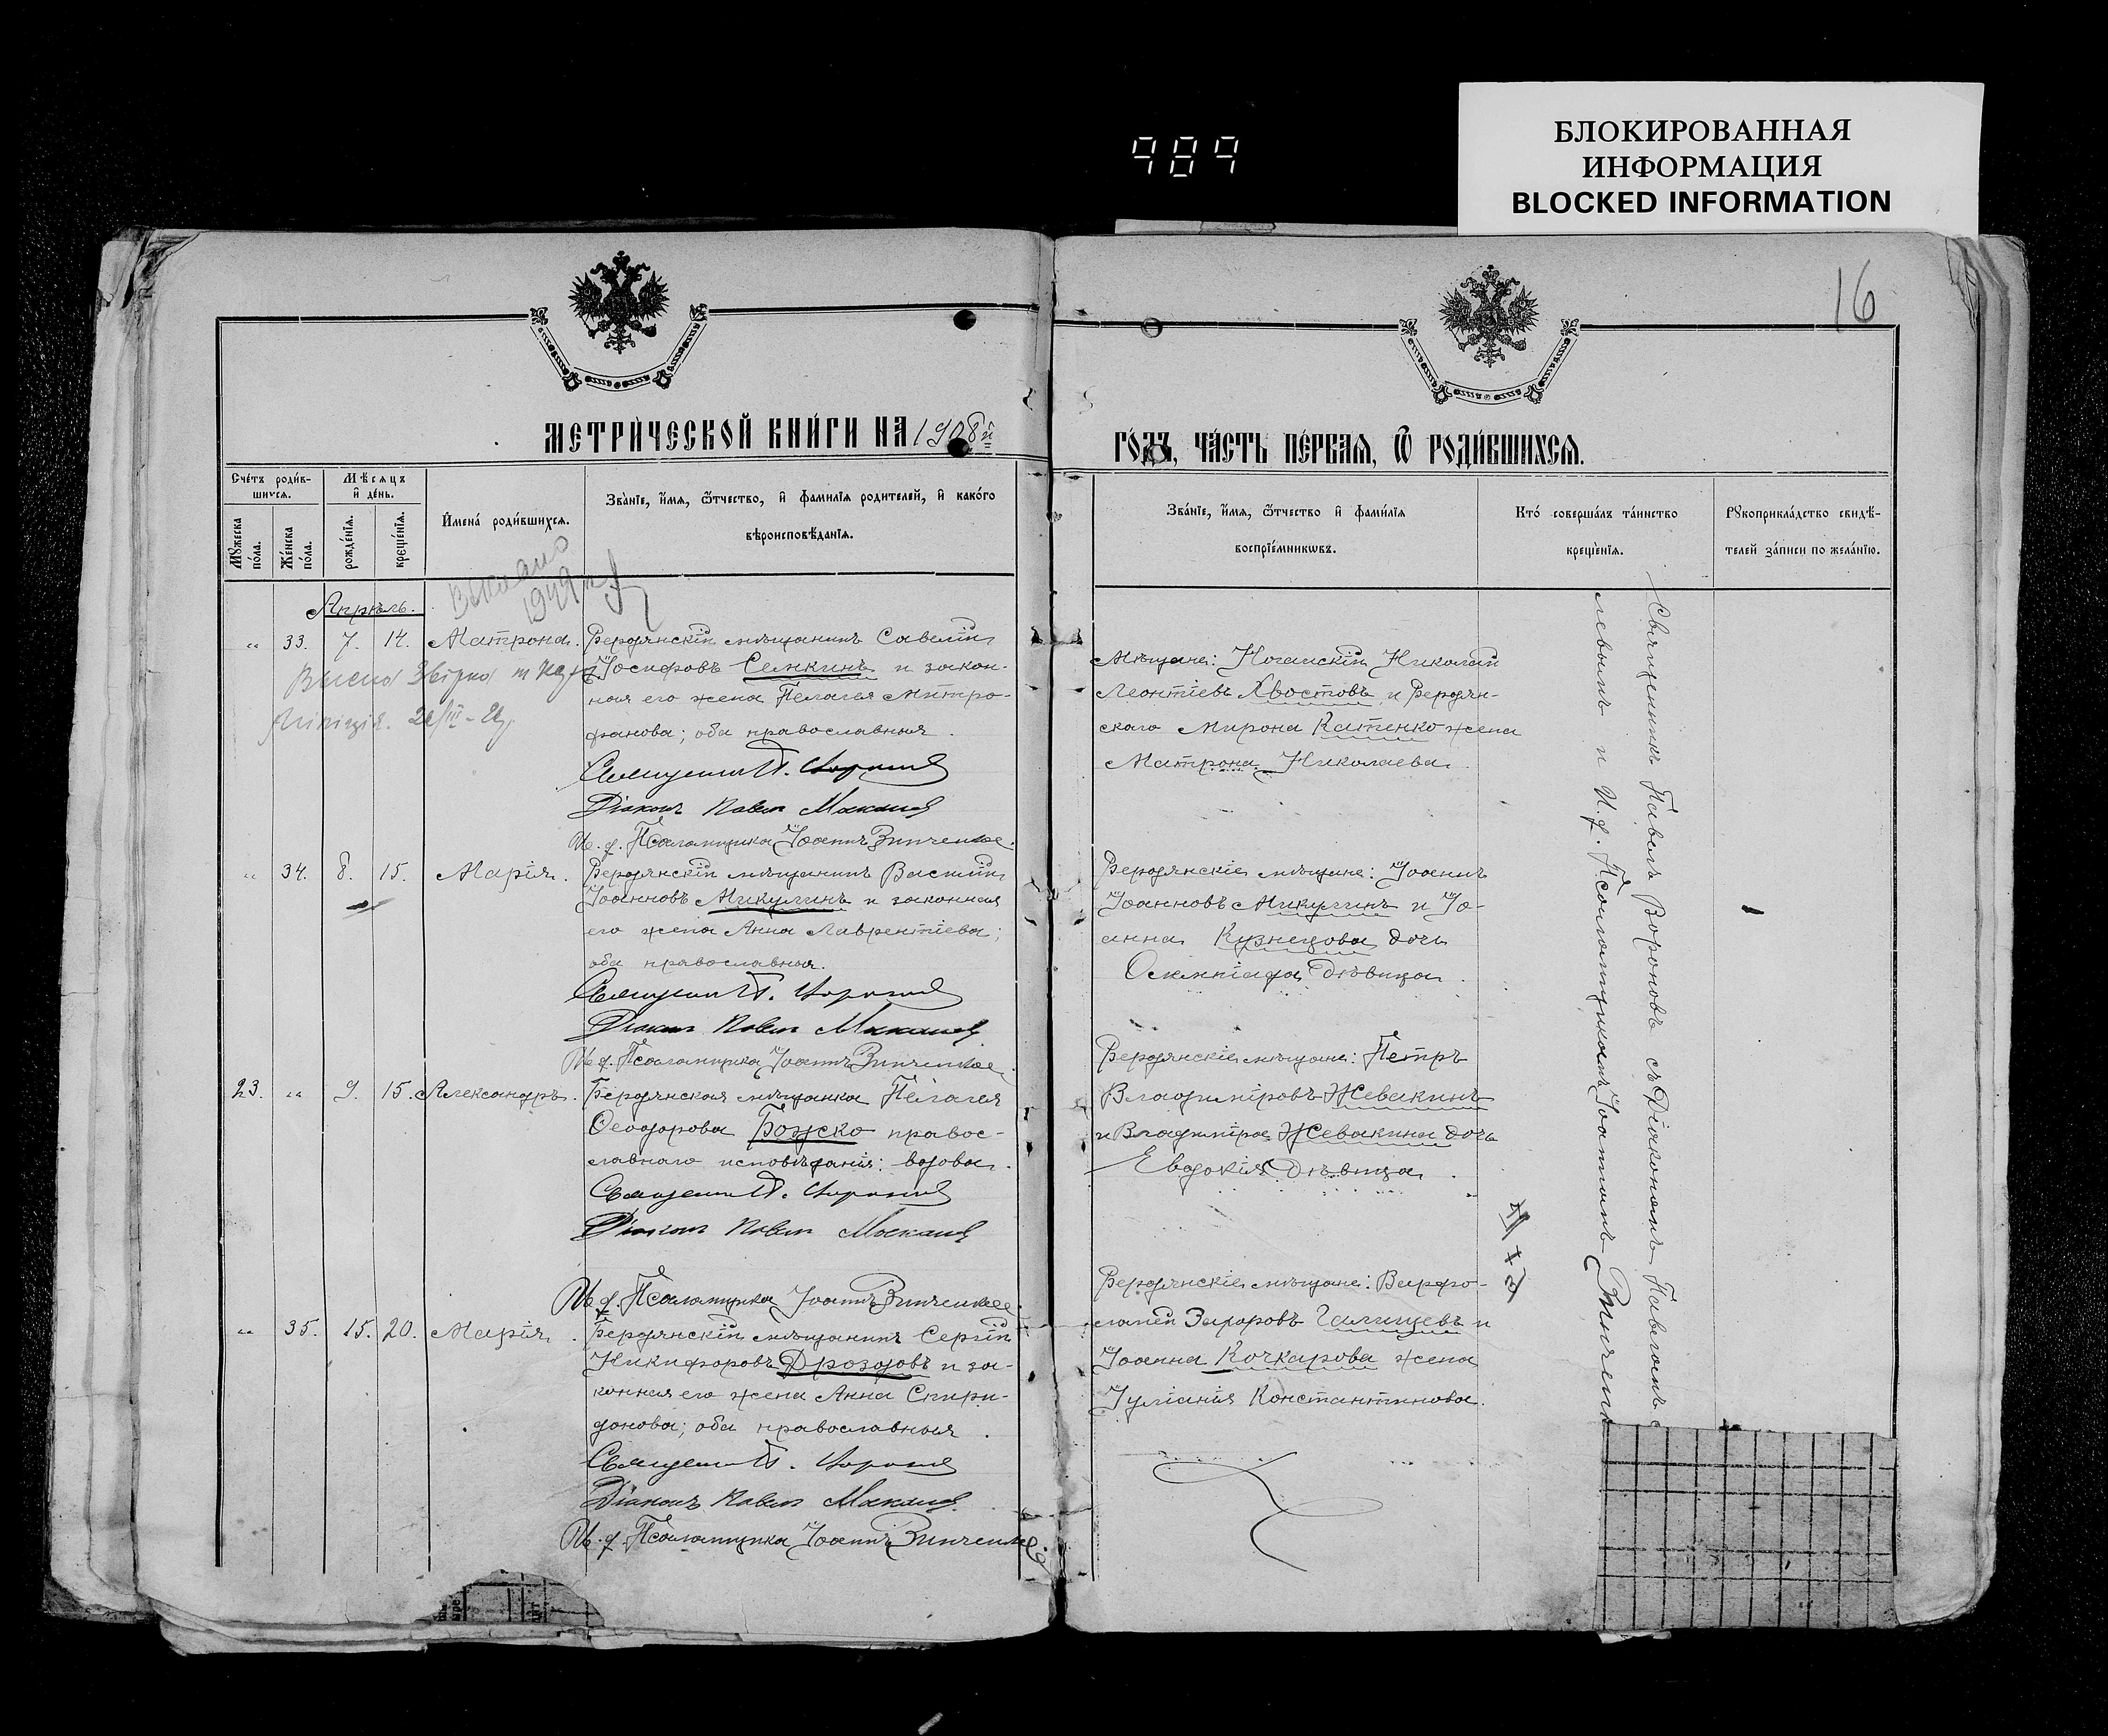 989
БЛОКИРОВАННАЯ
ИНФОРМАЦИЯ
BLOCKED INFORMATION
16
МЕТРИ́ЧЕСКОЙ КНИ́ГИ НА 1908й
ГО́ДЪ, ЧА́СТЬ ПЕ́РВАЯ, Ѽ РОДИ́ВШИХСЯ.
Сче́тъ роди́вшихся.
Му́жеска по́ла.
Же́нска по́ла.
Мѣ́сяцъ и де́нь.
рожде́нія.
креще́нія.
Имена́ роди́вшихся.
Зва́ніе, и́мя, ѻ́тчество, и фами́лія роди́телей, и како́го
вѣроисповѣ́данія.
Зва́ніе, и́мя, ѻ́тчество и фами́лія
воспріе́мникѡвъ.
Кто́ соверша́лъ та́инство
креще́нія.
Рꙋкоприкла́дство свидѣ́-
телей за́писи по жела́нію.
1949
Апрѣль.
" 33. 7. 14. Матрона. Бердянскій мѣщанинъ Савелій
Іосифовъ Семкинъ и закон-
ная его жена Пелагея Митро-
фанова; оба православныя.
Священникъ П. Вороновъ
Діаконъ Павелъ
И. ф. Псаломщика Іоаннъ Зинченко.
Мѣщане: Ногайскій Николай
Леонтіевъ Хвостовъ и Бердян-
скаго Мирона Катенко жена
Матрона Николаева.
" 34. 8. 15. Марія. Бердянскій мѣщанинъ Василій
Іоанновъ Микулинъ и законная
его жена Анна Лаврентіева;
оба православныя.
Священникъ П. Вороновъ
Діаконъ Павелъ
И. ф. Псаломщика Іоаннъ Зинченко.
Бердянскіе мѣщане: Іоаннъ
Іоанновъ Микулинъ и Іо-
анна Кузнецова дочь
Олимпіада дѣвица.
23. " 9. 15. Александръ. Бердянская мѣщанка Пелагея
Ѳеодорова Божско правос-
лавнаго исповѣданія: вдова.
Священникъ П. Вороновъ
Діаконъ Павелъ
И. ф. Псаломщика Іоаннъ Зинченко.
Бердянскіе мѣщане: Петръ
Владиміровъ Жевакинъ
и Владиміра Жевакина дочь
Евдокія дѣвица.
" 35. 15. 20. Марія. Бердянскій мѣщанинъ Сергій
Никифоровъ Дроздовъ и за-
конная его жена Анна Спири-
донова; оба православныя.
Священникъ П. Вороновъ
Діаконъ Павелъ
И. ф. Псаломщика Іоаннъ Зинченко.
Бердянскіе мѣщане: Варфо-
ломей Галицевъ и
Іоанна Кочкарова жена
Іуліанія Константинова.
Священникъ Павелъ Вороновъ съ Діакономъ Павломъ
и И. ф. Псаломщикомъ Іоанномъ